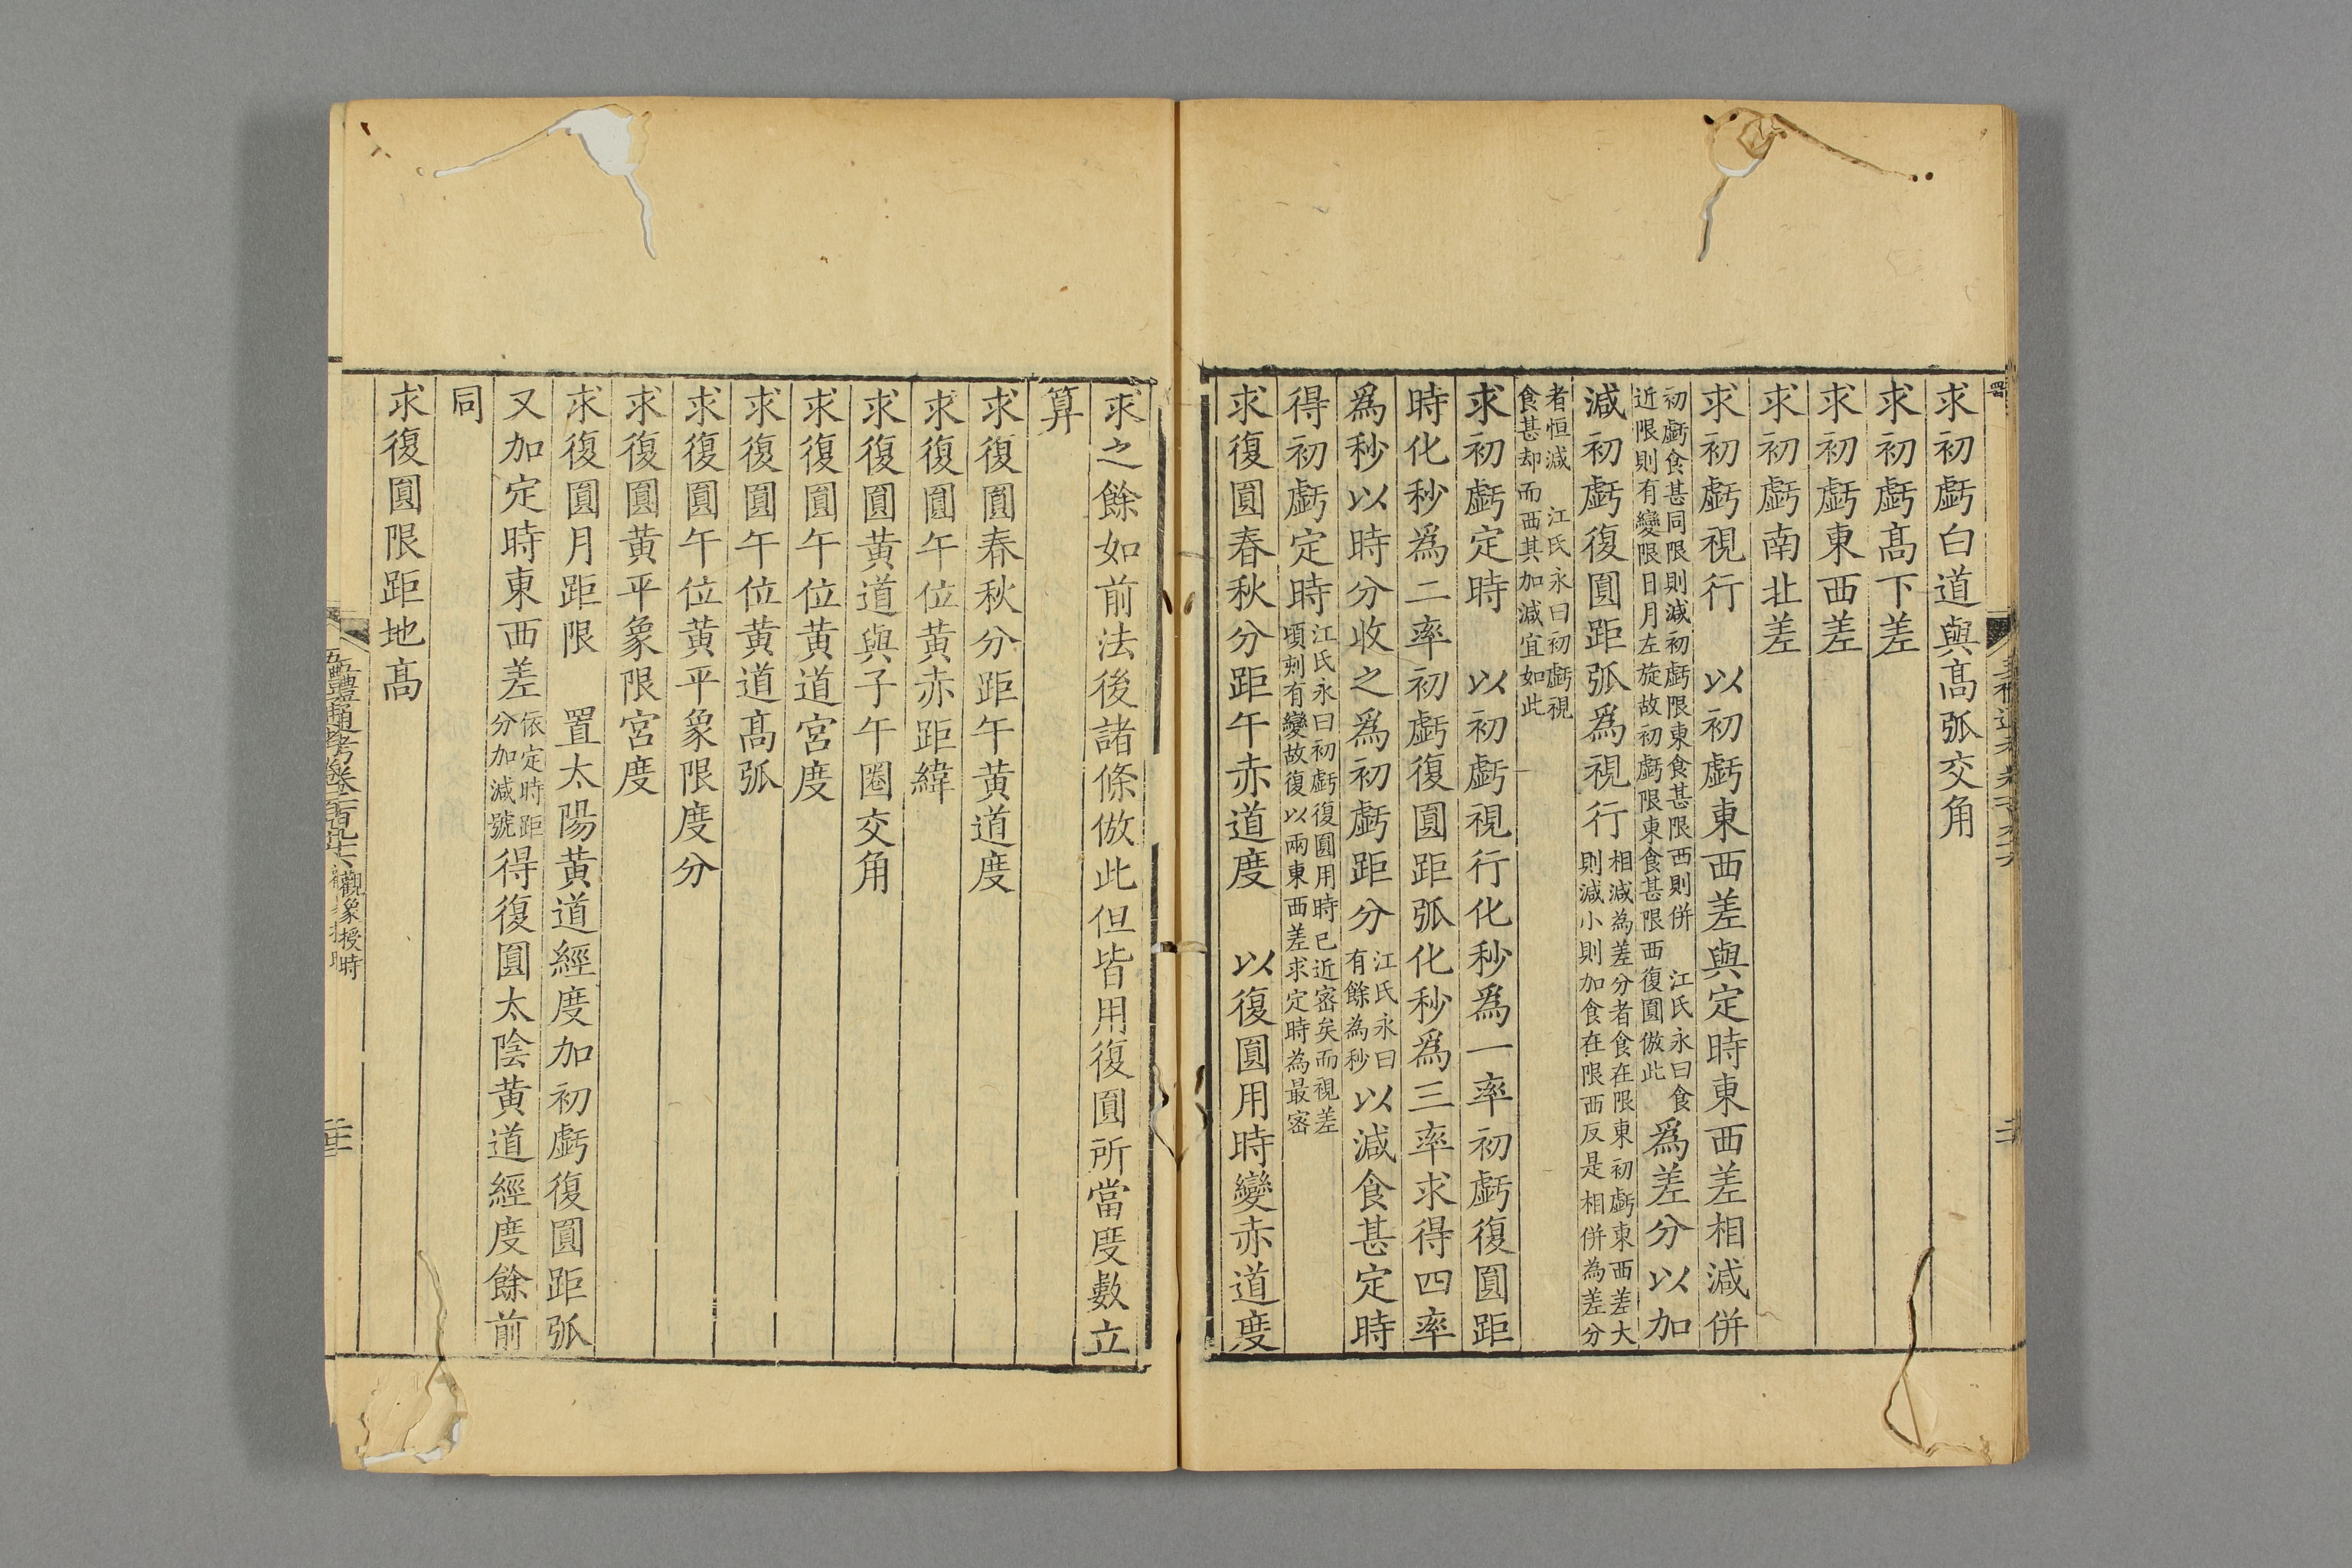 求初虧白道與髙弧交角
求初虧髙下差
求初虧東西差
求初虧南北差
求初虧視行　以初虧東西差與定時東西差相減併
初虧食甚同限則減初虧限東食甚限西則併　江氏永曰食
近限則有變限日月左旋故初虧限東食甚限西復圓倣此
爲差分以加
減初虧復圓距弧爲視行
相減為差分者食在限東初虧東西差大
則減小則加食在限西反是相併為差分
者恒減　江氏永曰初虧視
食甚却而西其加減宜如此
求初虧定時　以初虧視行化秒爲一率初虧復圓距
時化秒爲二率初虧復圓距弧化秒爲三率求得四率
爲秒以時分收之爲初虧距分
江氏永曰
有餘為秒
以減食甚定時
得初虧定時
江氏永曰初虧復圓用時已近密矣而視差
頃刻有變故復以兩東西差求定時為最密
求復圓春秋分距午赤道度　以復圓用時變赤道度
求之餘如前法後諸條倣此但皆用復圓所當度數立
算
求復圓春秋分距午黃道度
求復圓午位黃赤距緯
求復圓黃道與子午圈交角
求復圓午位黃道宮度
求復圓午位黃道髙弧
求復圓午位黃平象限度分
求復圓黃平象限宮度
求復圓月距限　置太陽黃道經度加初虧復圓距弧
又加定時東西差
依定時距
分加減號
得復圓太陰黃道經度餘前
同
求復圓限距地髙
五禮通考卷一百九十六　觀象授時